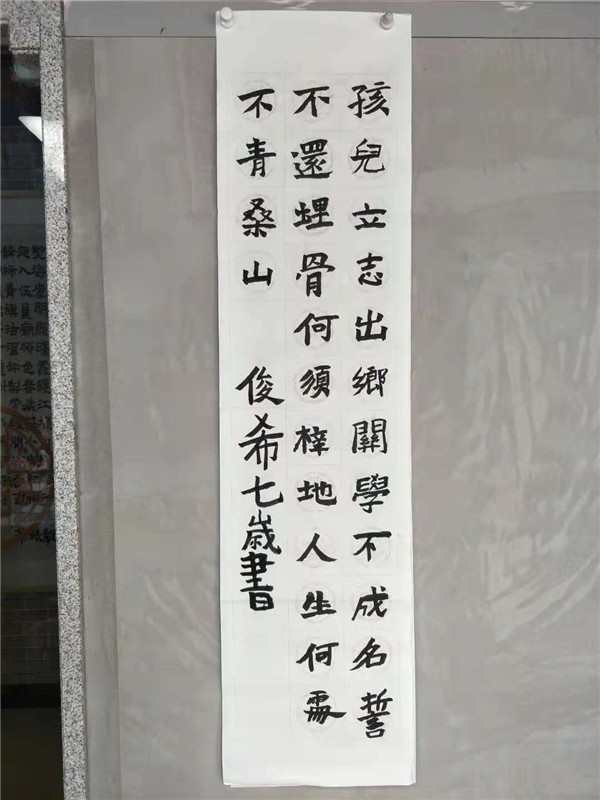 孩兒立志出鄉關學不成名誓
不還埋骨何須梓地人生何處
不青桑山 俊希七歲書